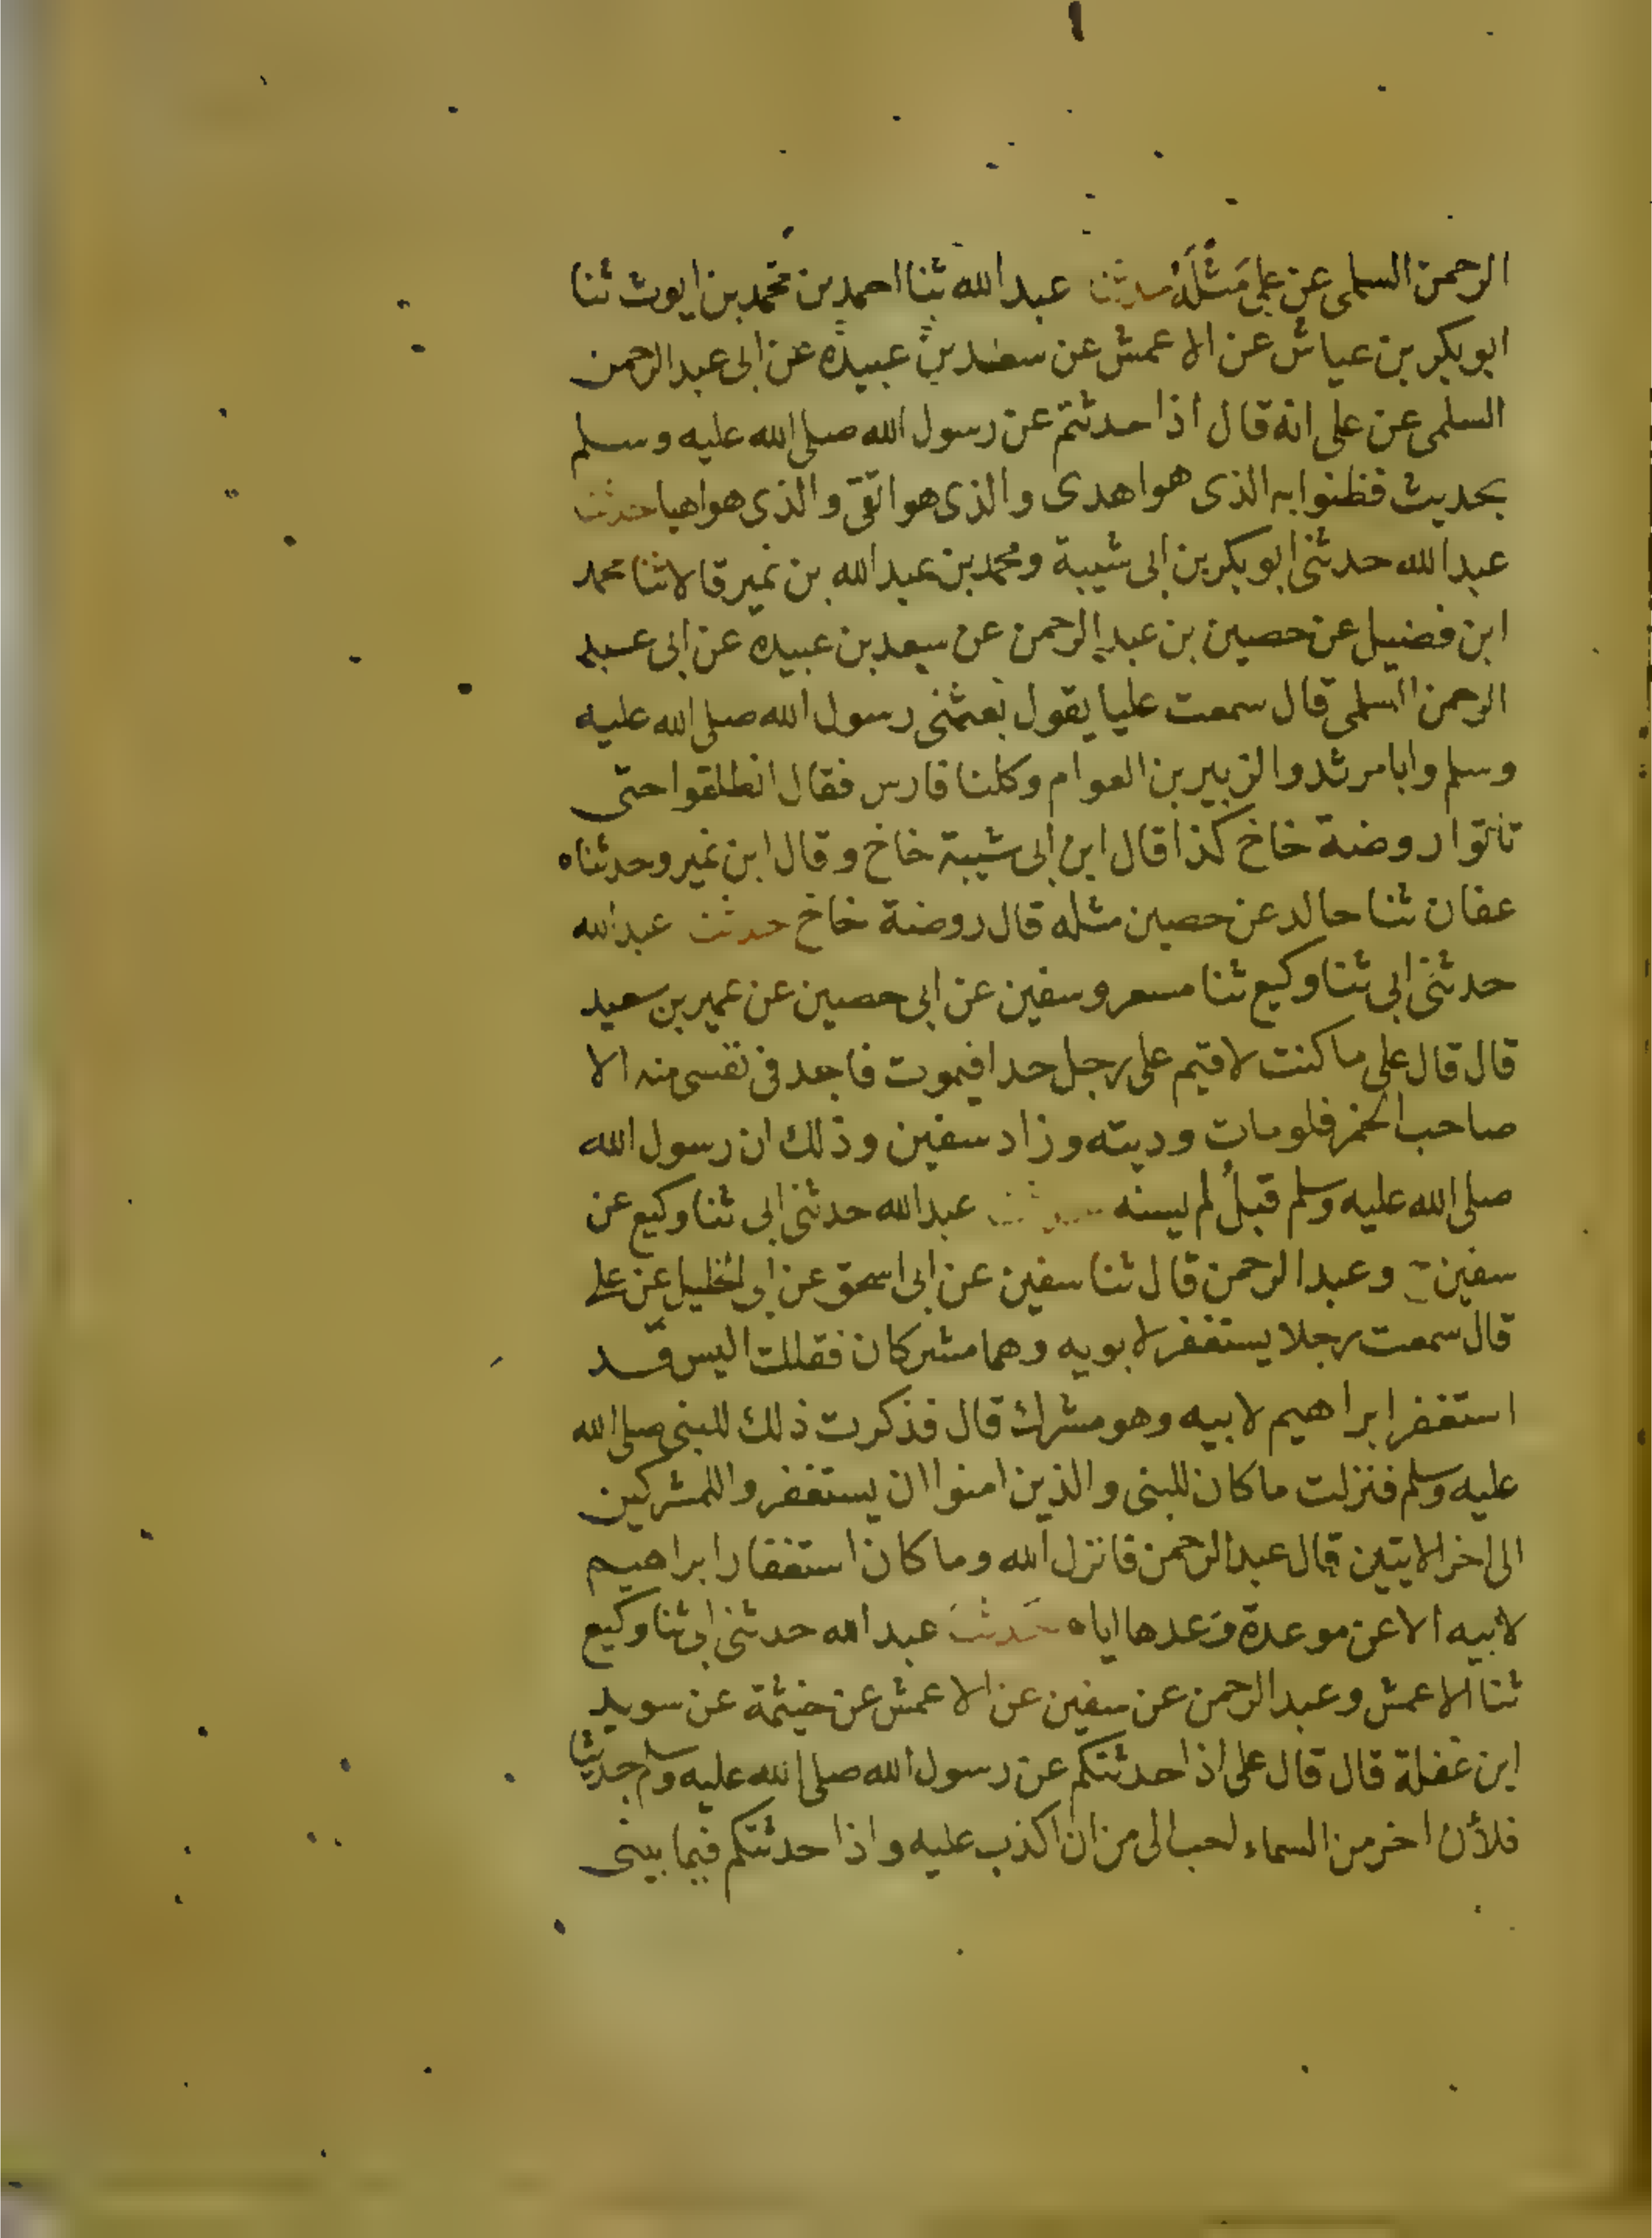 ١
الرحمن السلمى عن على مثله حدثنا عبد الله ثنا احمد بن محمد بن ايوب ثنا
ابو بكر بن عياش عن الاعمش عن سعد بن عبيدة عن ابى عبد الرحمن
السلمى عن على انه قال اذا حدثتم عن رسول الله صلى الله عليه وسلم
بحديث فظنوا به الذى هو اهدى والذى هو اتقى والذى هو اهيا حدثنا
عبد الله حدثنى ابو بكر بن ابى شيبة ومحمد بن عبد الله بن نمير قالا ثنا محمد
ابن فضيل عن حصين بن عبد الرحمن عن سعد بن عبيده عن ابى عبد
الرحمن السلمى قال سمعت عليا يقول بعثنى رسول الله صلى الله عليه
وسلم وابا مرثد والزبير بن العوام وكلنا فارس فقال انطلقوا حتى
تاتوا روضة خاخ كذا قال ابن ابى شيبة خاخ وقال ابن نمير وحدثناه
عفان ثنا خالد عن حصين مثله قال روضة خاخ حدثنا عبد الله
حدثنى ابى ثنا وكيع ثنا مسعر وسفين عن ابى حصين عن عمير بن سعيد
قال قال على ما كنت لاقيم على رجل حدا فيموت فاجد فى نفسى منه الا
صاحب الخمر فلو مات وديته وزاد سفين وذلك ان رسول الله
صلى الله عليه وسلم قبل لم يسنه حدثنا عبد الله حدثنى ابى ثنا وكيع عن
سفين وعبد الرحمن قال ثنا سفين عن ابى اسحق عن ابى الخليل عن على
قال سمعت رجلا يستغفر لابويه وهما مشركان فقلت اليس قد
استغفر ابراهيم لابيه وهو مشرك قال فذكرت ذلك للنبى صلى الله
عليه وسلم فنزلت ما كان للنبى والذين امنوا ان يستغفروا للمشركين
الى اخر الايتين قال عبد الرحمن فانزل الله وما كان استغفار ابراهيم
لابيه الا عن موعدة وعدها اياه حدثنا عبد الله حدثنى ابى ثنا وكيع
ثنا الاعمش وعبد الرحمن عن سفين عن الاعمش عن خيثمة عن سويد
ابن غفلة قال قال على اذا حدثتكم عن رسول الله صلى الله عليه وسلم حديثا
فلأن اخر من السماء احب الى من ان اكذب عليه واذا حدثتكم فيما بينى